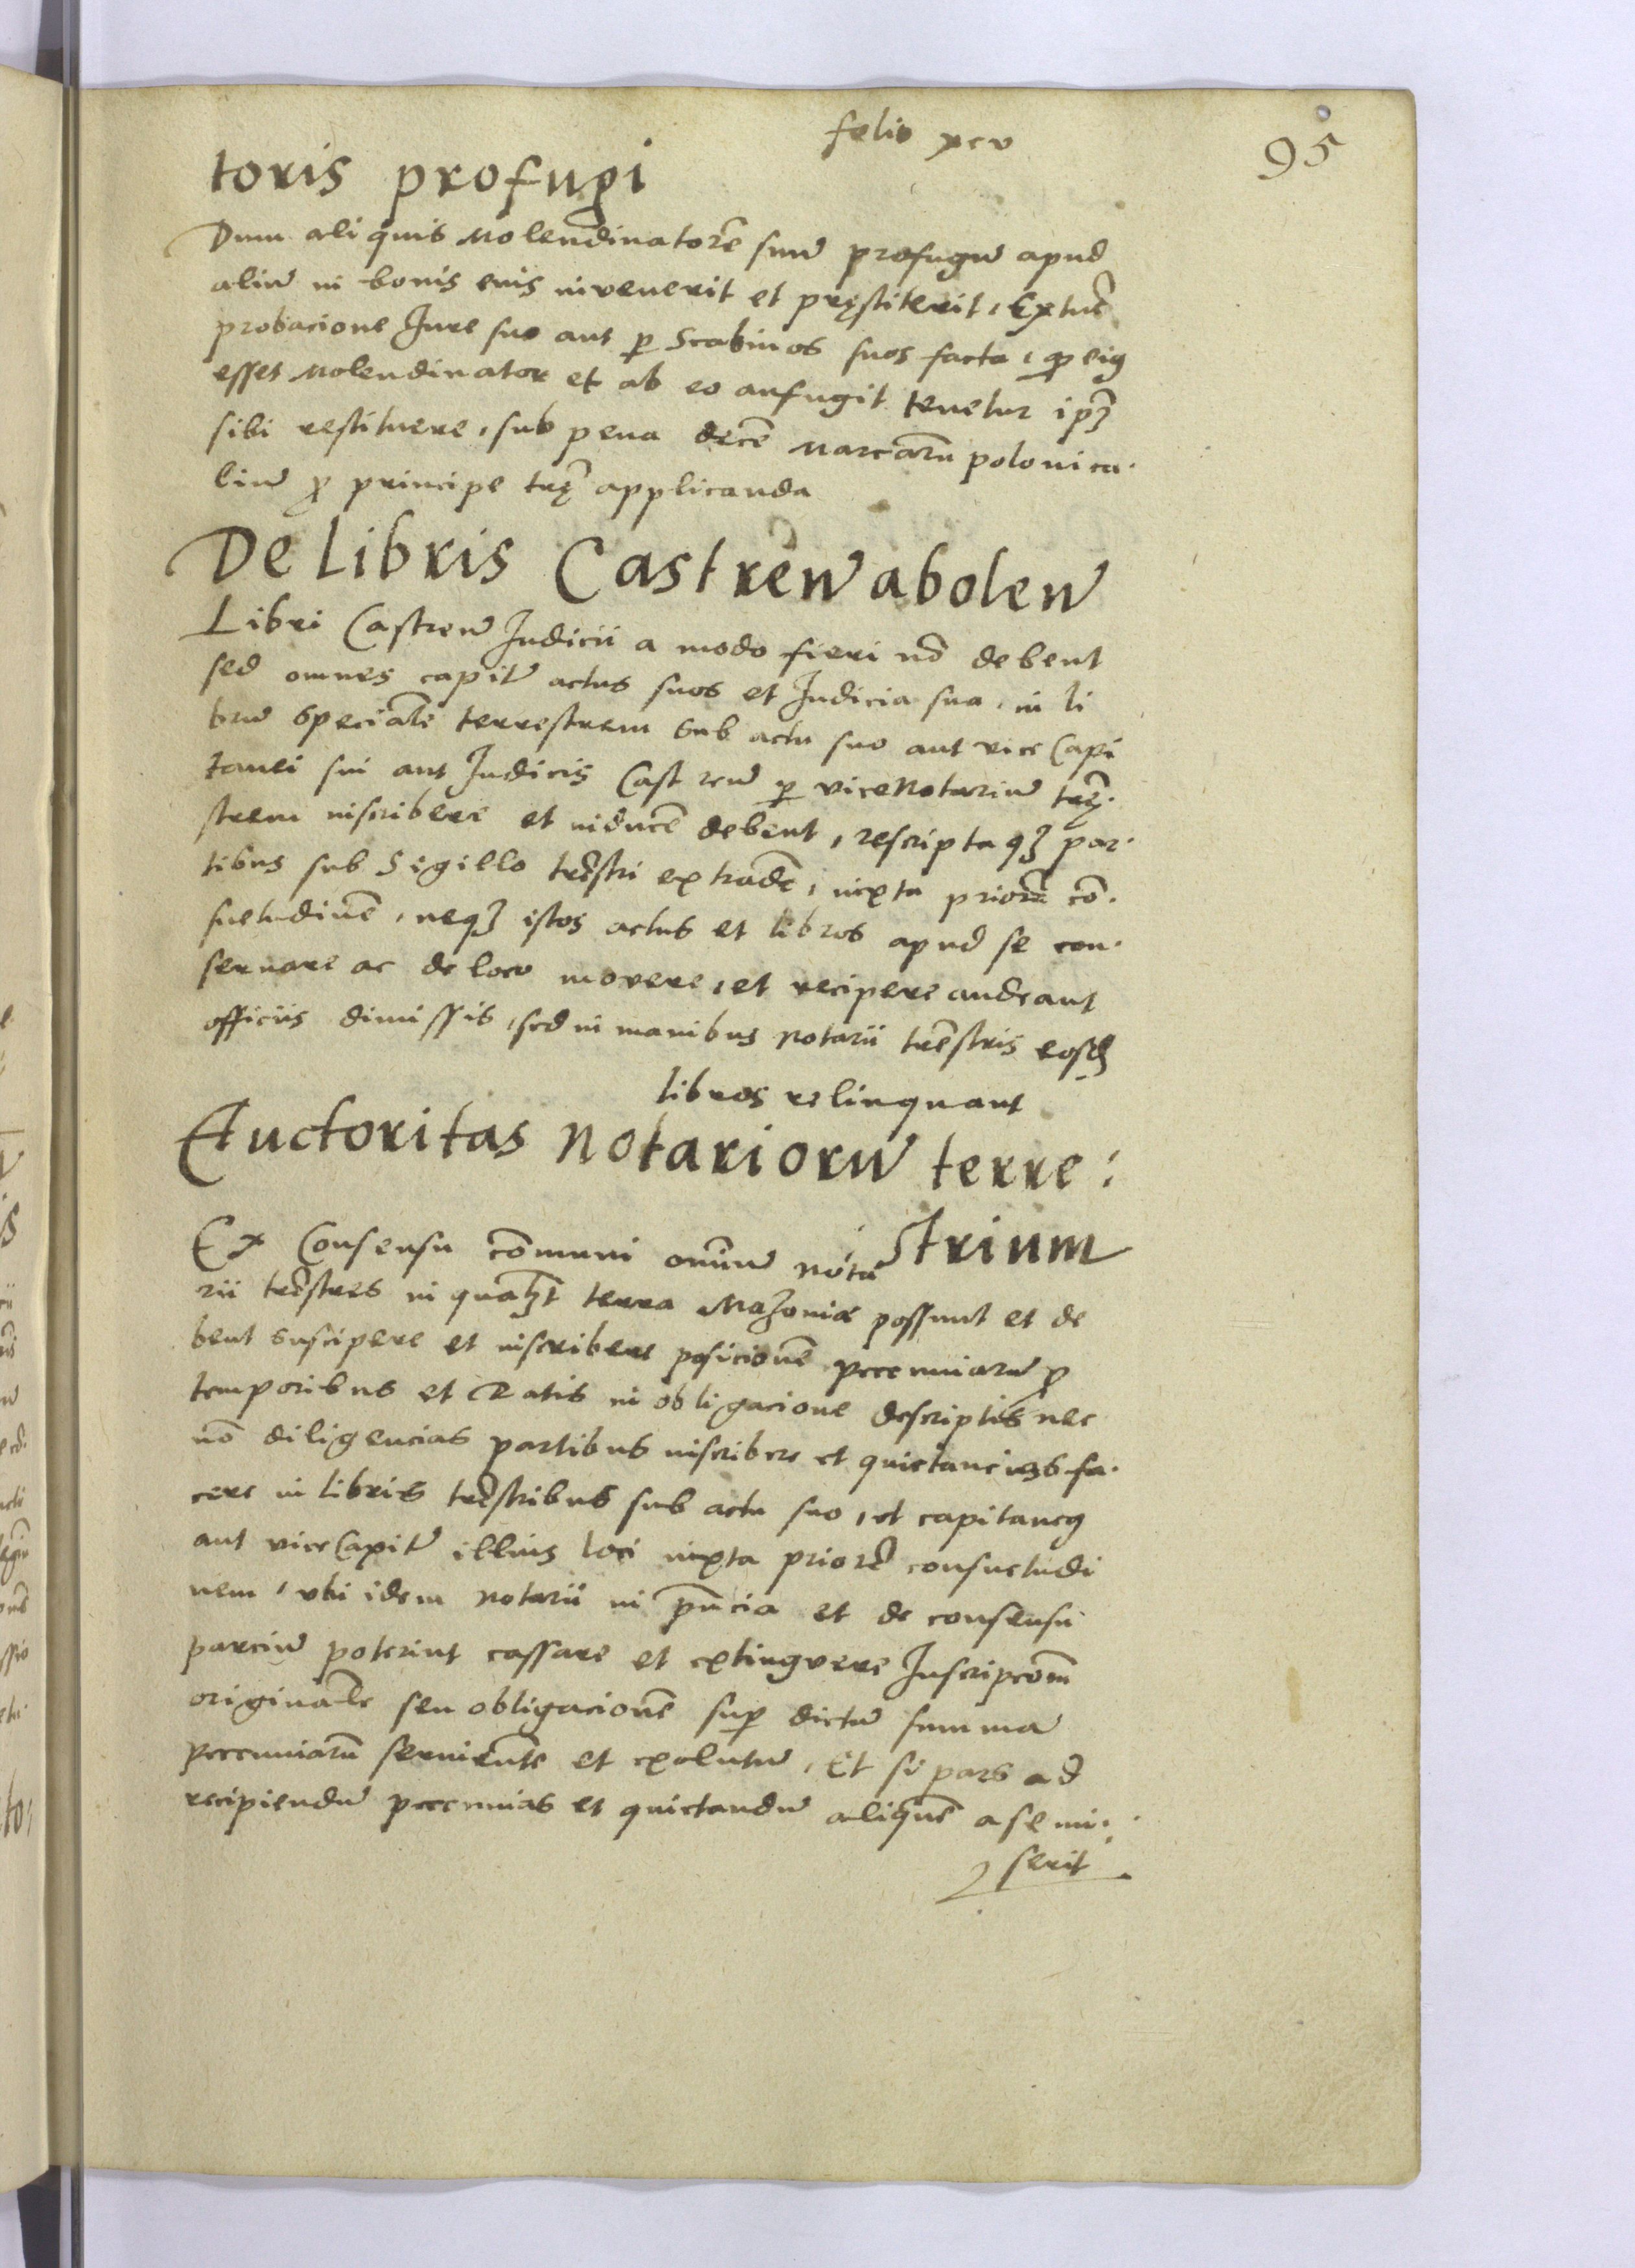 folio xcv
95
toris profugi
Dum aliquis Molendinatorē suū profugū apud
aliū in bonis eius invenerit et pręstiterit, Extūc
probacione Jure suo aut ꝑ Scabinos suos facta, ꝙ eiꝰ
esset Molendinator et ab eo aufugit tenetur ipȝ
sibi restituere, sub pena decē Marcarū polonica·
liū ꝓ principe trę̄ applicanda
De Libris Castreñ abolen̄
Libri Castren̄ Judicii a modo fieri nō debent
sed omnes capit̄ actus suos et Judicia sua, in li
brū Specialē terrestrem Sub actu suo aut vice Capi
tanei sui aut Judicis Castren̄ ꝑ vice Notariū trē·
strem inscribere et inducē debent, rescripta qȝ par·
tibus sub Sigillo trēstri extradē, iuxta priorē cō·
suetudinē, neqȝ istos actus et libros apud se con·
servare ac de loco movere, et recipere audeant
officiis dimissis, sed in manibus Notarii trēstris eosdē
libros relinquant
Auctoritas Notariorū terre:
strium
Ex Consensu cōmuni omniū Nota
rii trēstres in qualȝt terra Mazoviæ possunt et de
bent Suscipere et inscribere posicionē peccuniarū ꝓ
temporibus et Ratis in obligacione descriptis nec
nō diligencias partibus inscribere et quietancias fa·
cere in libris trēstribus sub actu suo, et capitaneꝰ
aut vice Capit̄ illius loci iuxta priorē consuetudi
nem, ubi idem Notarii in pn̄cia et de consensu
parciū poterint cassare et extinguere Inscripcōm
originalē seu obligacionē suꝑ dictā summā
peccuniarū servientē et exolutū, Et si pars ad
recipiendū peccunias et quietandū aliquē a se mi·
serit